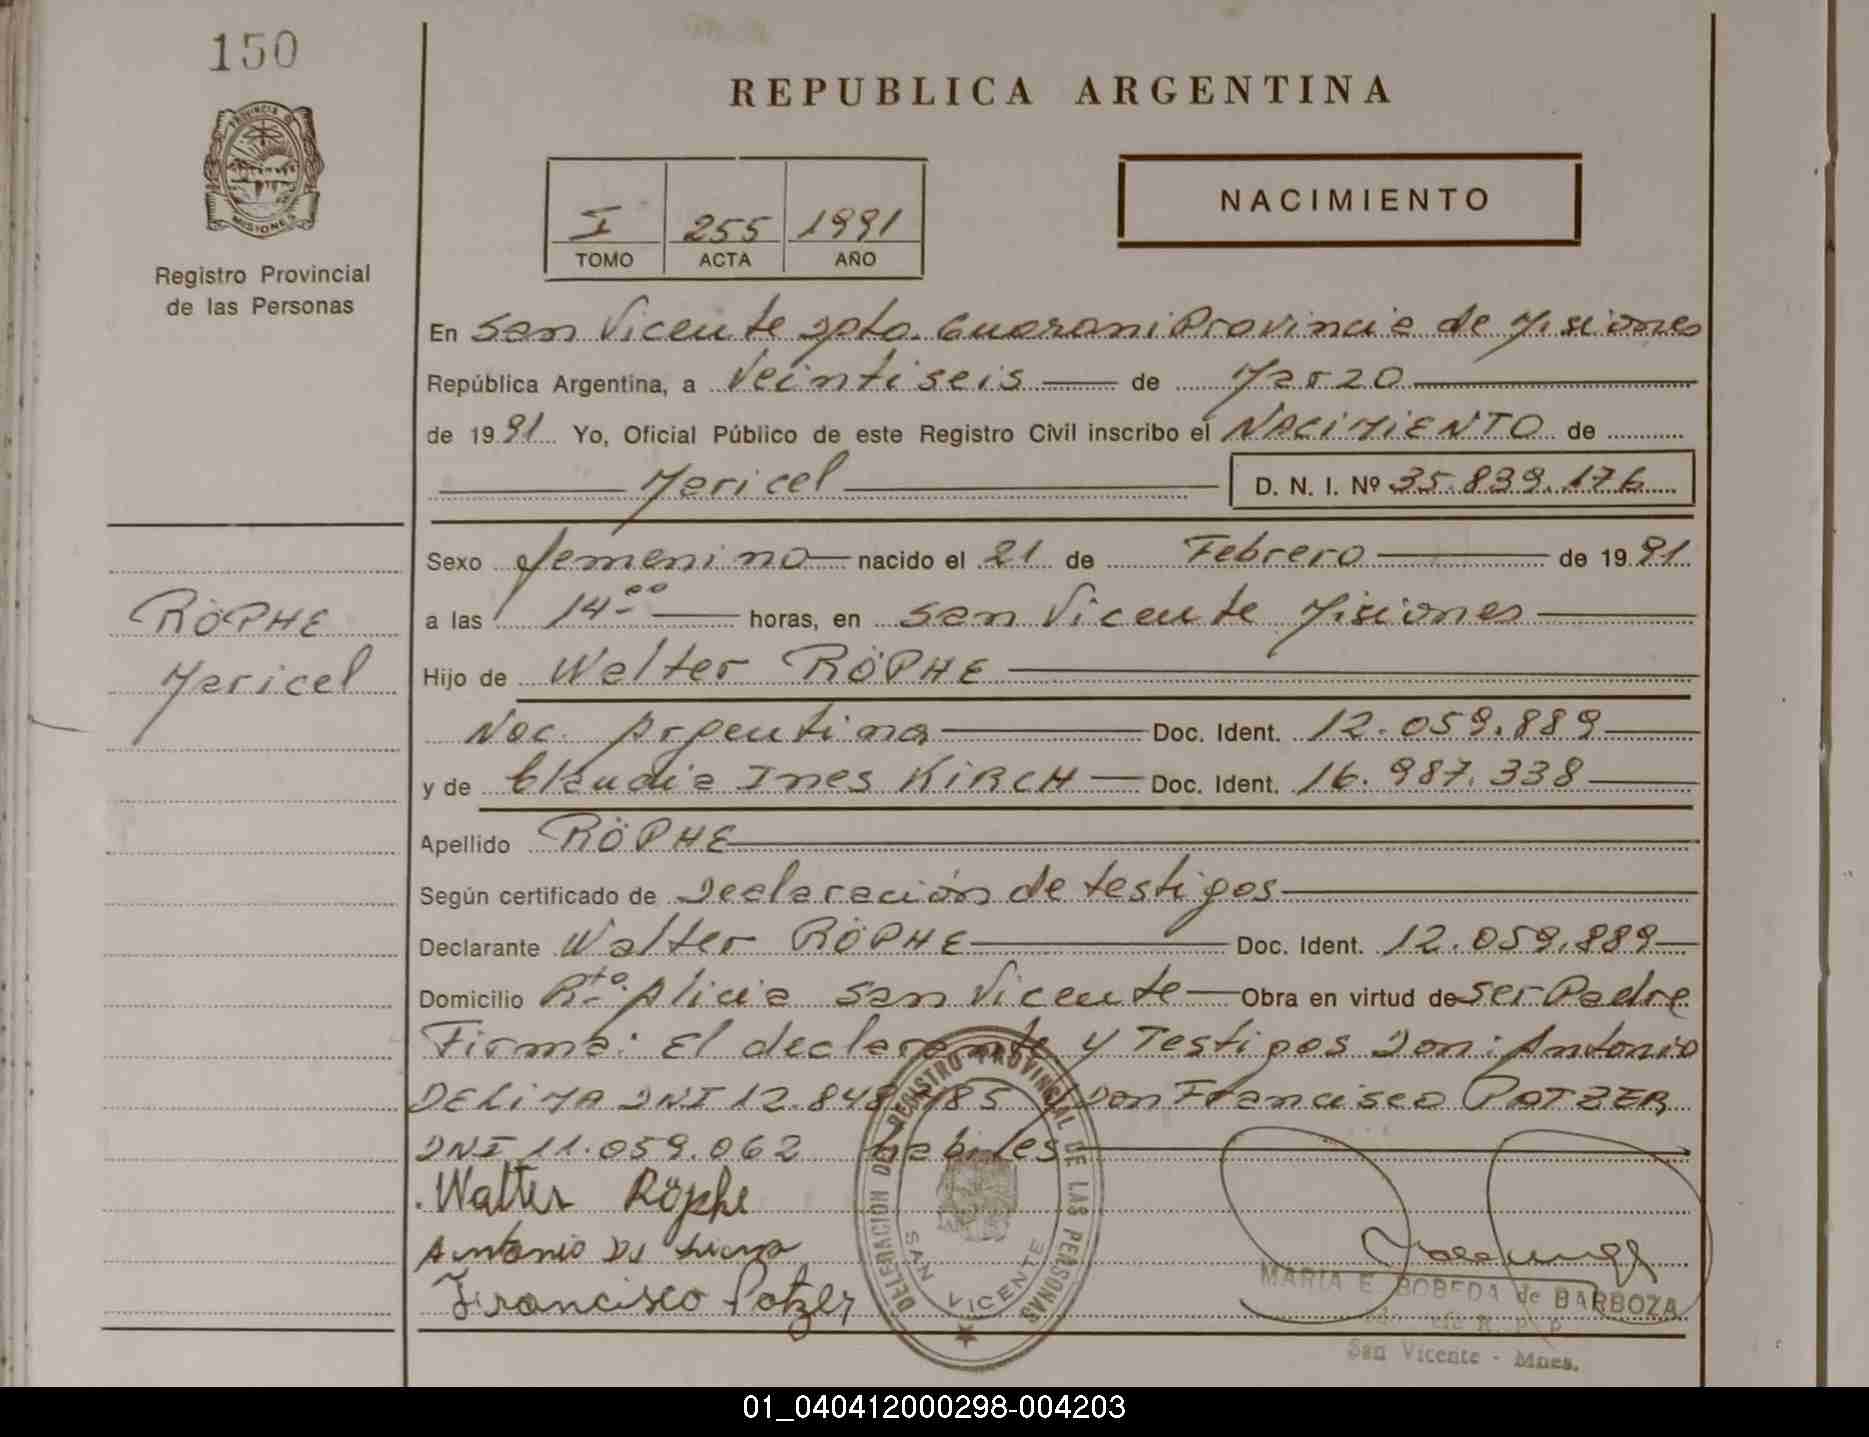 150
REPUBLICA ARGENTINA
PROVINCIA D
MISIONES
Registro Provincial
de las Personas
I 255 1991
TOMO ACTA AÑO
NACIMIENTO
En San Vicente Dpto. Guarani Provincia de Misiones
República Argentina, a Veintiseis de Marzo
de 1991 Yo, Oficial Público de este Registro Civil inscribo el NACIMIENTO de
Maricel D. N. I. Nº 35.839.176
Sexo femenino nacido el 21 de Febrero de 1991
a las 14 00 horas, en San Vicente Misiones
RÖPHE
Maricel
Hijo de Walter RÖPHE
Nac. Argentina Doc. Ident. 12.059.889
y de Claudia Ines KIRCH Doc. Ident. 16.987.338
Apellido RÖPHE
Según certificado de Declaración de testigos
Declarante Walter RÖPHE Doc. Ident. 12.059.889
Domicilio Rto. Alicia San Vicente Obra en virtud de ser Padre
Firma: El declarante y Testigos Don: Antonio
DELIMA DNI 12.848.485 y Don Francisco POTZER
DNI 11.059.062 habiles
Walter Röphe
Antonio De Lima
Francisco Potzer
DELEGACION DEL REGISTRO PROVINCIAL DE LAS PERSONAS
SAN VICENTE
MARIA E. BOBEDA de BARBOZA
San Vicente - Mnes.
01_040412000298-004203